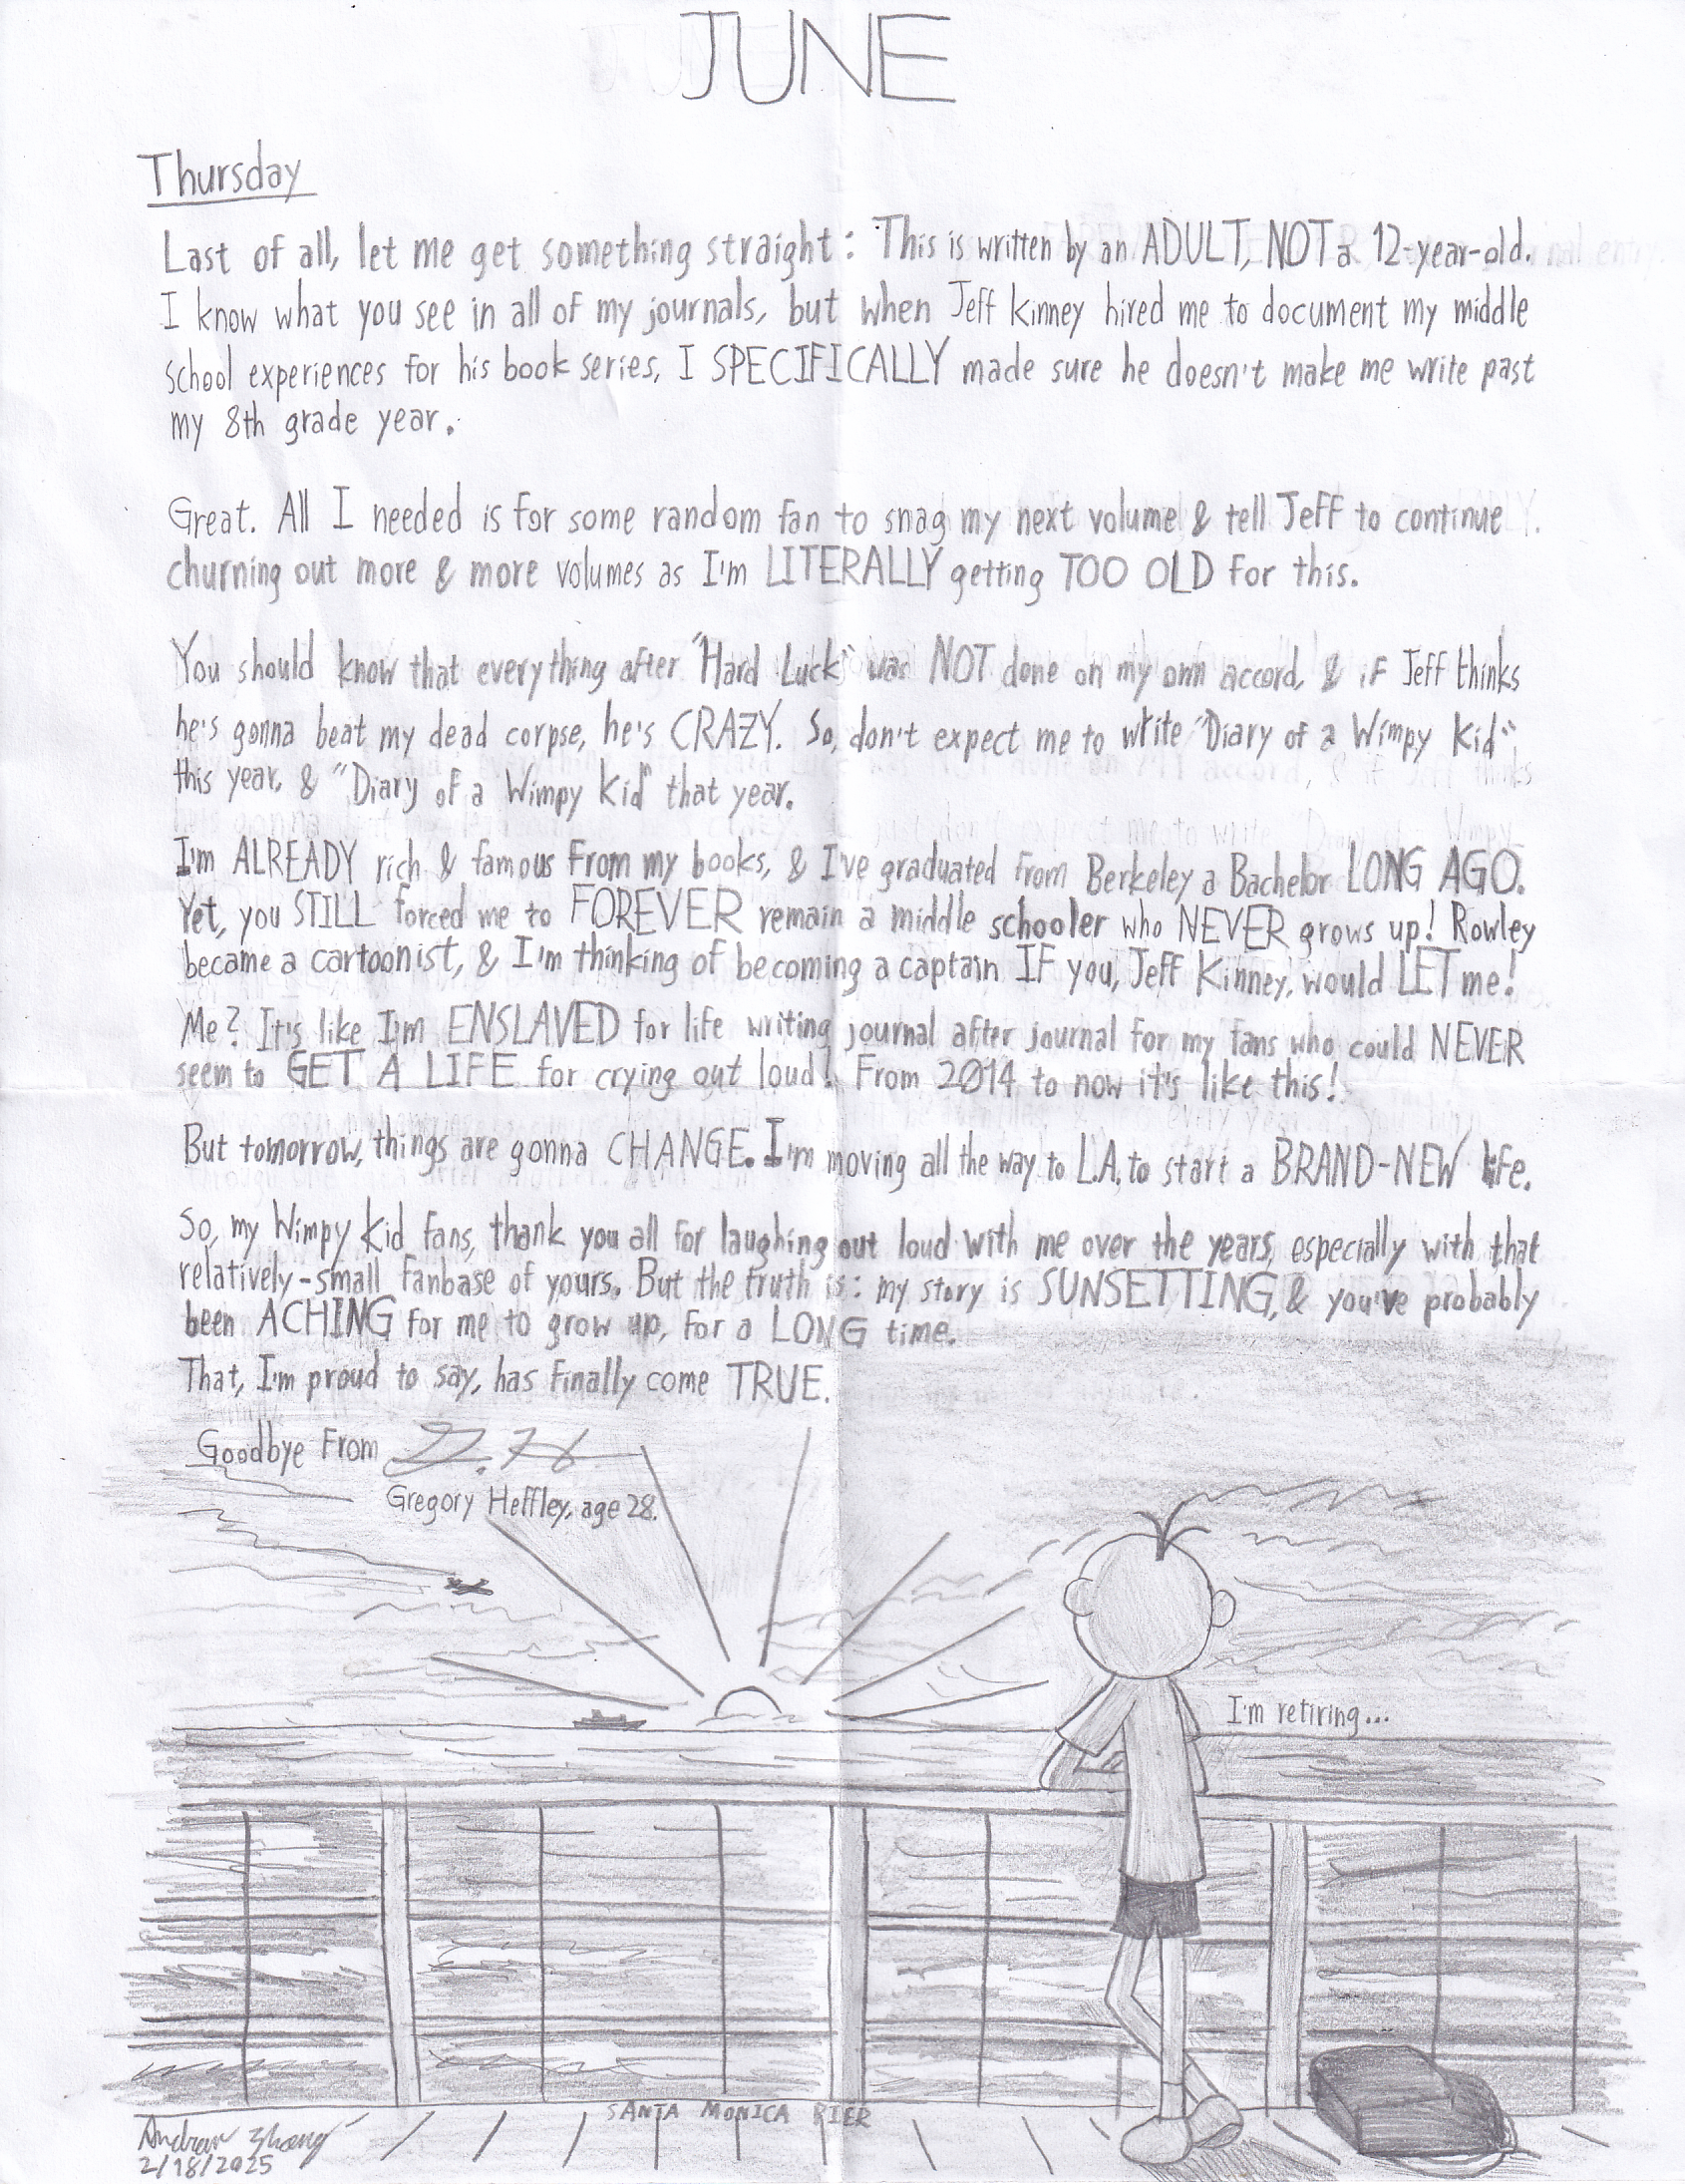 JUNE
Thursday
Last of all, let me get something straight: This is written by an ADULT, NOT a 12-year-old.
I know what you see in all of my journals, but when Jeff Kinney hired me to document my middle
school experiences for his book series, I SPECIFICALLY made sure he doesn't make me write past
my 8th grade year.
Great. All I needed is for some random fan to snag my next volume & tell Jeff to continue
churning out more & more volumes as I'm LITERALLY getting TOO OLD for this.
You should know that everything after "Hard Luck" was NOT done on my own accord, & if Jeff thinks
he's gonna beat my dead corpse, he's CRAZY. So, don't expect me to write "Diary of a Wimpy Kid"
this year, & "Diary of a Wimpy Kid" that year.
I'm ALREADY rich & famous from my books, & I've graduated from Berkeley a Bachelor LONG AGO.
Yet, you STILL forced me to FOREVER remain a middle schooler who NEVER grows up! Rowley
became a cartoonist, & I'm thinking of becoming a captain IF you, Jeff Kinney, would LET me!
Me? It's like I'm ENSLAVED for life writing journal after journal for my fans who could NEVER
seem to GET A LIFE for crying out loud! From 2014 to now it's like this!
But tomorrow, things are gonna CHANGE. I'm moving all the way to L.A. to start a BRAND-NEW life.
So, my Wimpy Kid fans, thank you all for laughing out loud with me over the years, especially with that
relatively-small fanbase of yours. But the truth is: my story is SUNSETTING, & you've probably
been ACHING for me to grow up, for a LONG time.
That, I'm proud to say, has finally come TRUE.
Goodbye From G. H
Gregory Heffley, age 28.
I'm retiring...
SANTA MONICA PIER
Andrew Zhang
2/18/2025